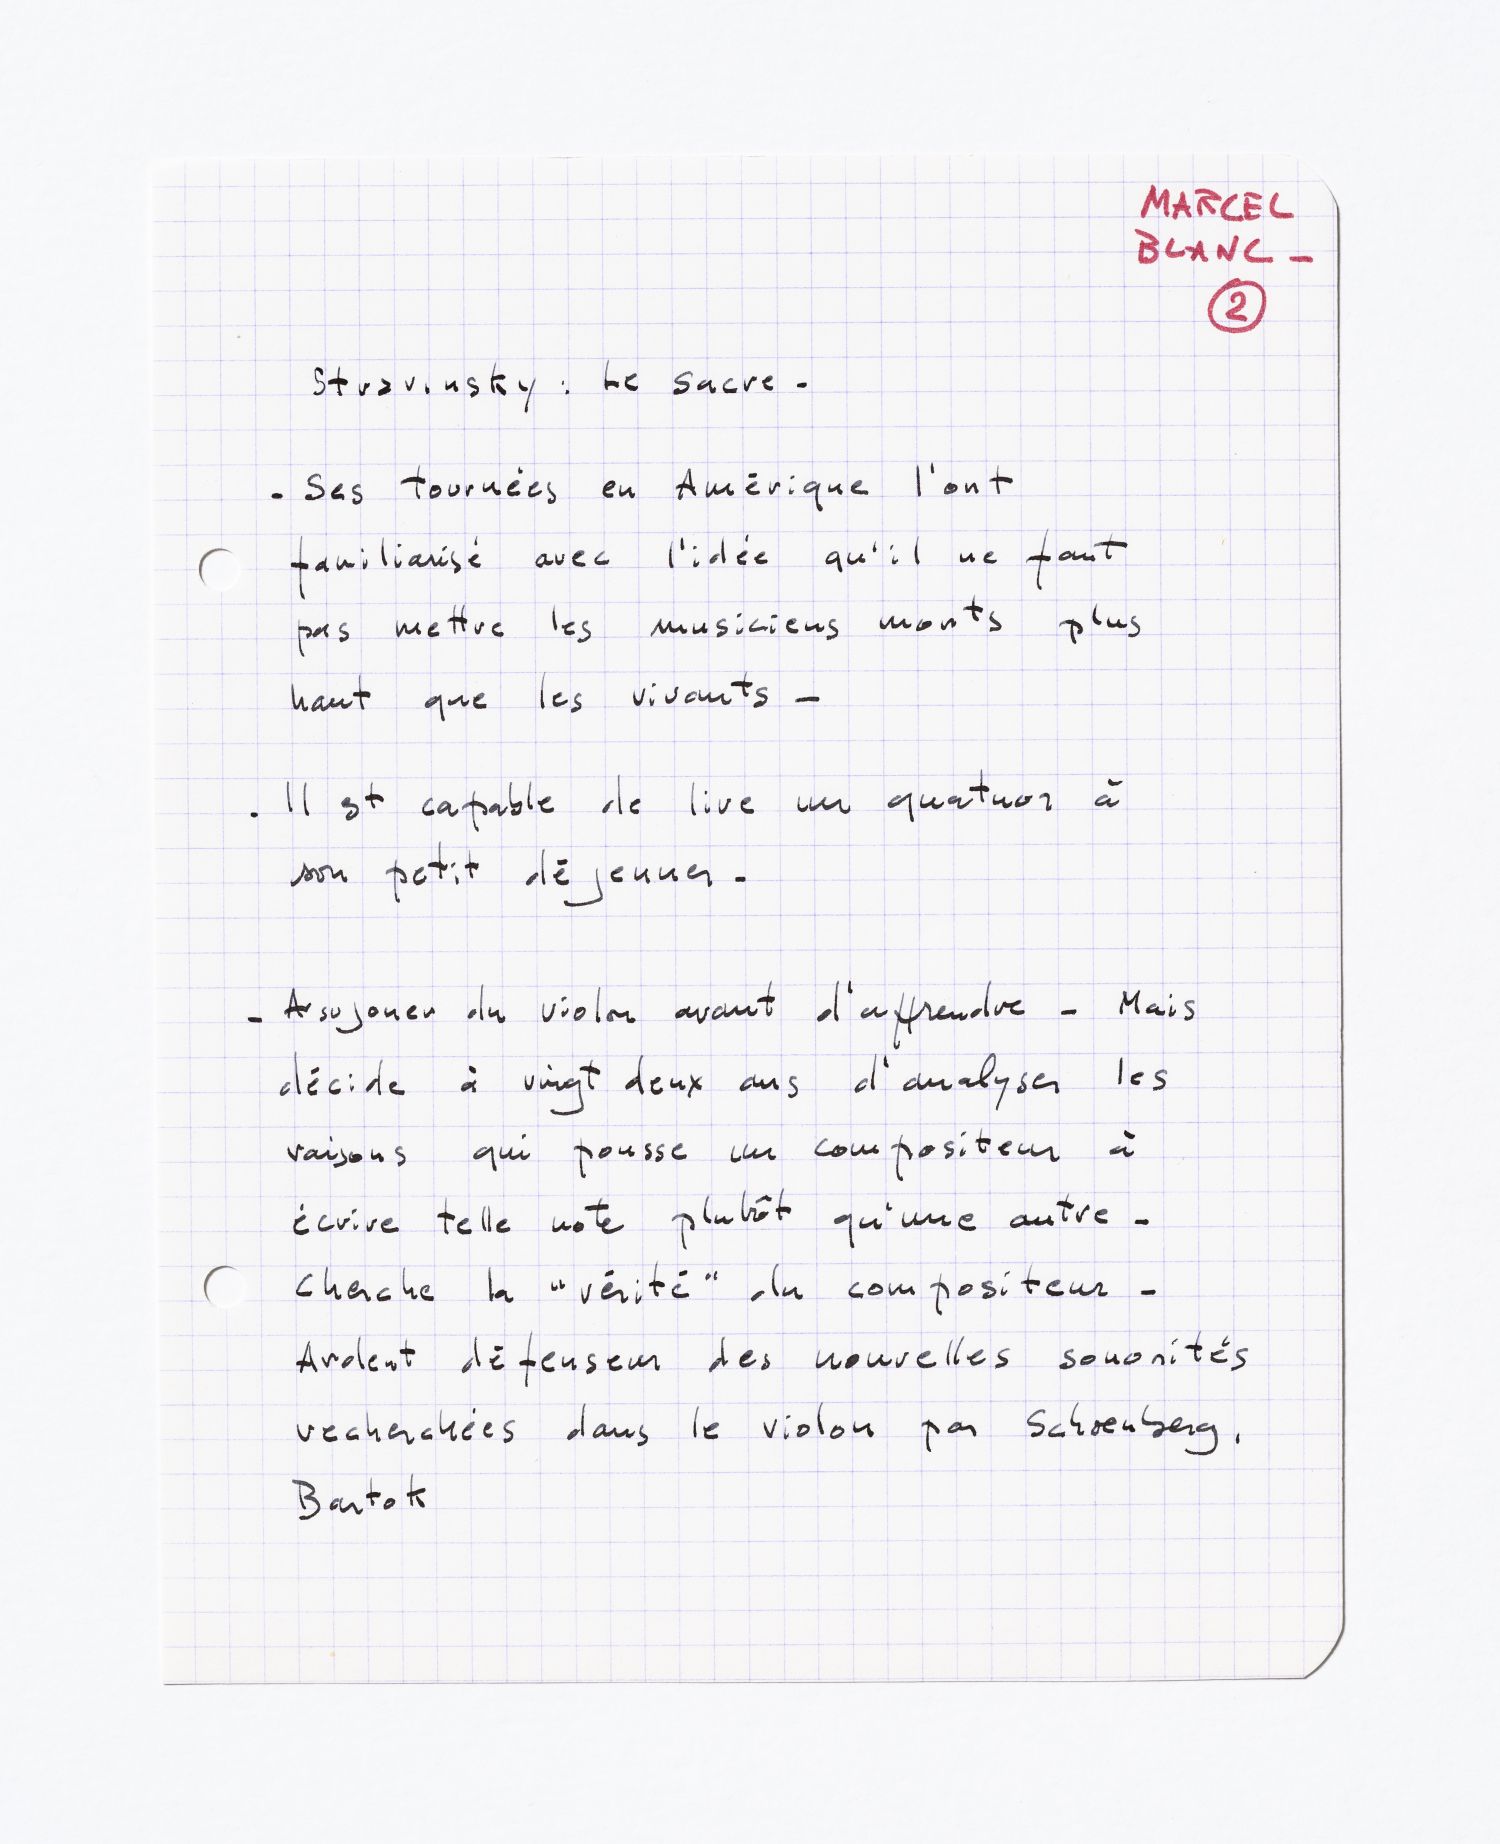 MARCEL
BLANC -
2
Stravinsky : Le sacre -
- Ses tournées en Amérique l'ont
familiarisé avec l'idée qu'il ne faut
pas mettre les musiciens morts plus
haut que les vivants -
. Il est capable de lire un quatuor à
son petit déjeuner -
- A su jouer du violon avant d'apprendre - Mais
décide à vingt deux ans d'analyser les
raisons qui pousse un compositeur à
écrire telle note plutôt qu'une autre -
Cherche la "vérité" du compositeur -
Ardent défenseur des nouvelles sonorités
recherchées dans le violon par Schoenberg,
Bartok